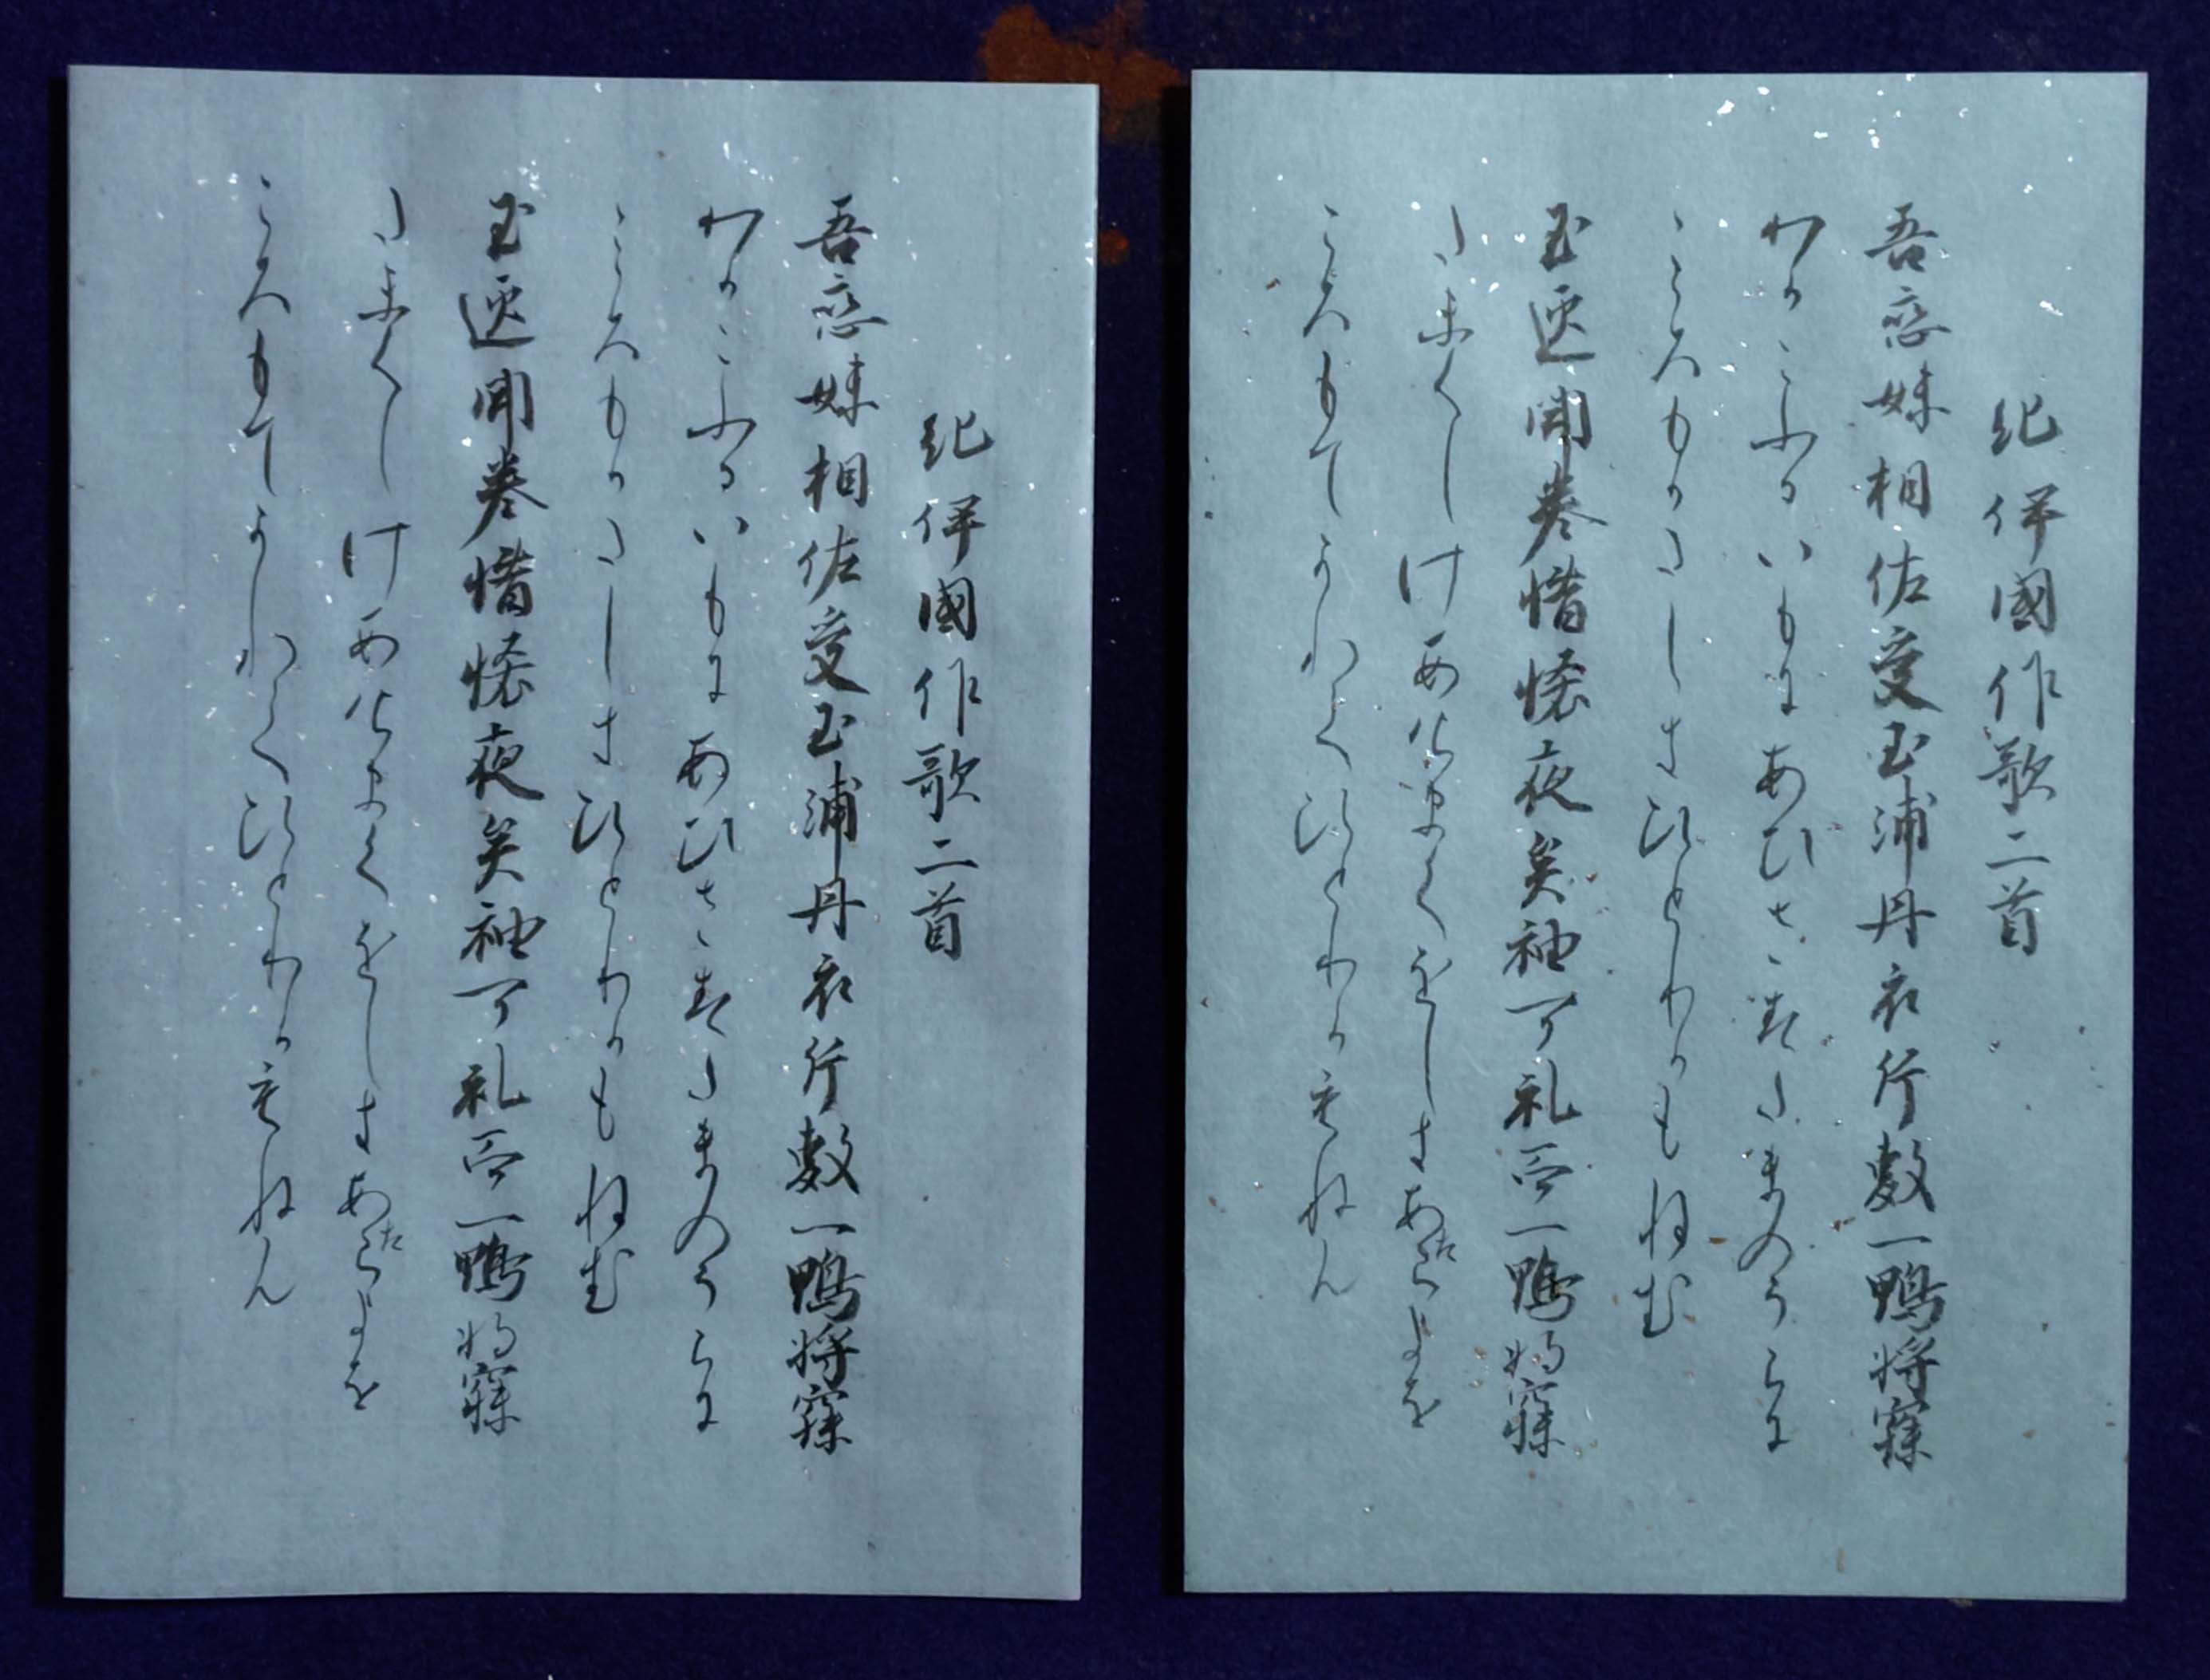 紀伊國作歌二首
吾戀妹相佐受玉浦丹衣片敷一鴨将寐
わかこふるいもにあひさゝすたまのうらに
ころもかたしきひとりかもねむ
玉匣開巻惜悋夜矣袖可礼而一鴨将寐
たまくしけあけまくをしきあたらよを
ころもてかれてひとりかもねん
紀伊國作歌二首
吾戀妹相佐受玉浦丹衣片敷一鴨将寐
わかこふるいもにあひさゝすたまのうらに
ころもかたしきひとりかもねむ
玉匣開巻惜悋夜矣袖可礼而一鴨将寐
たまくしけあけまくをしきあたらよを
ころもてかれてひとりかもねん